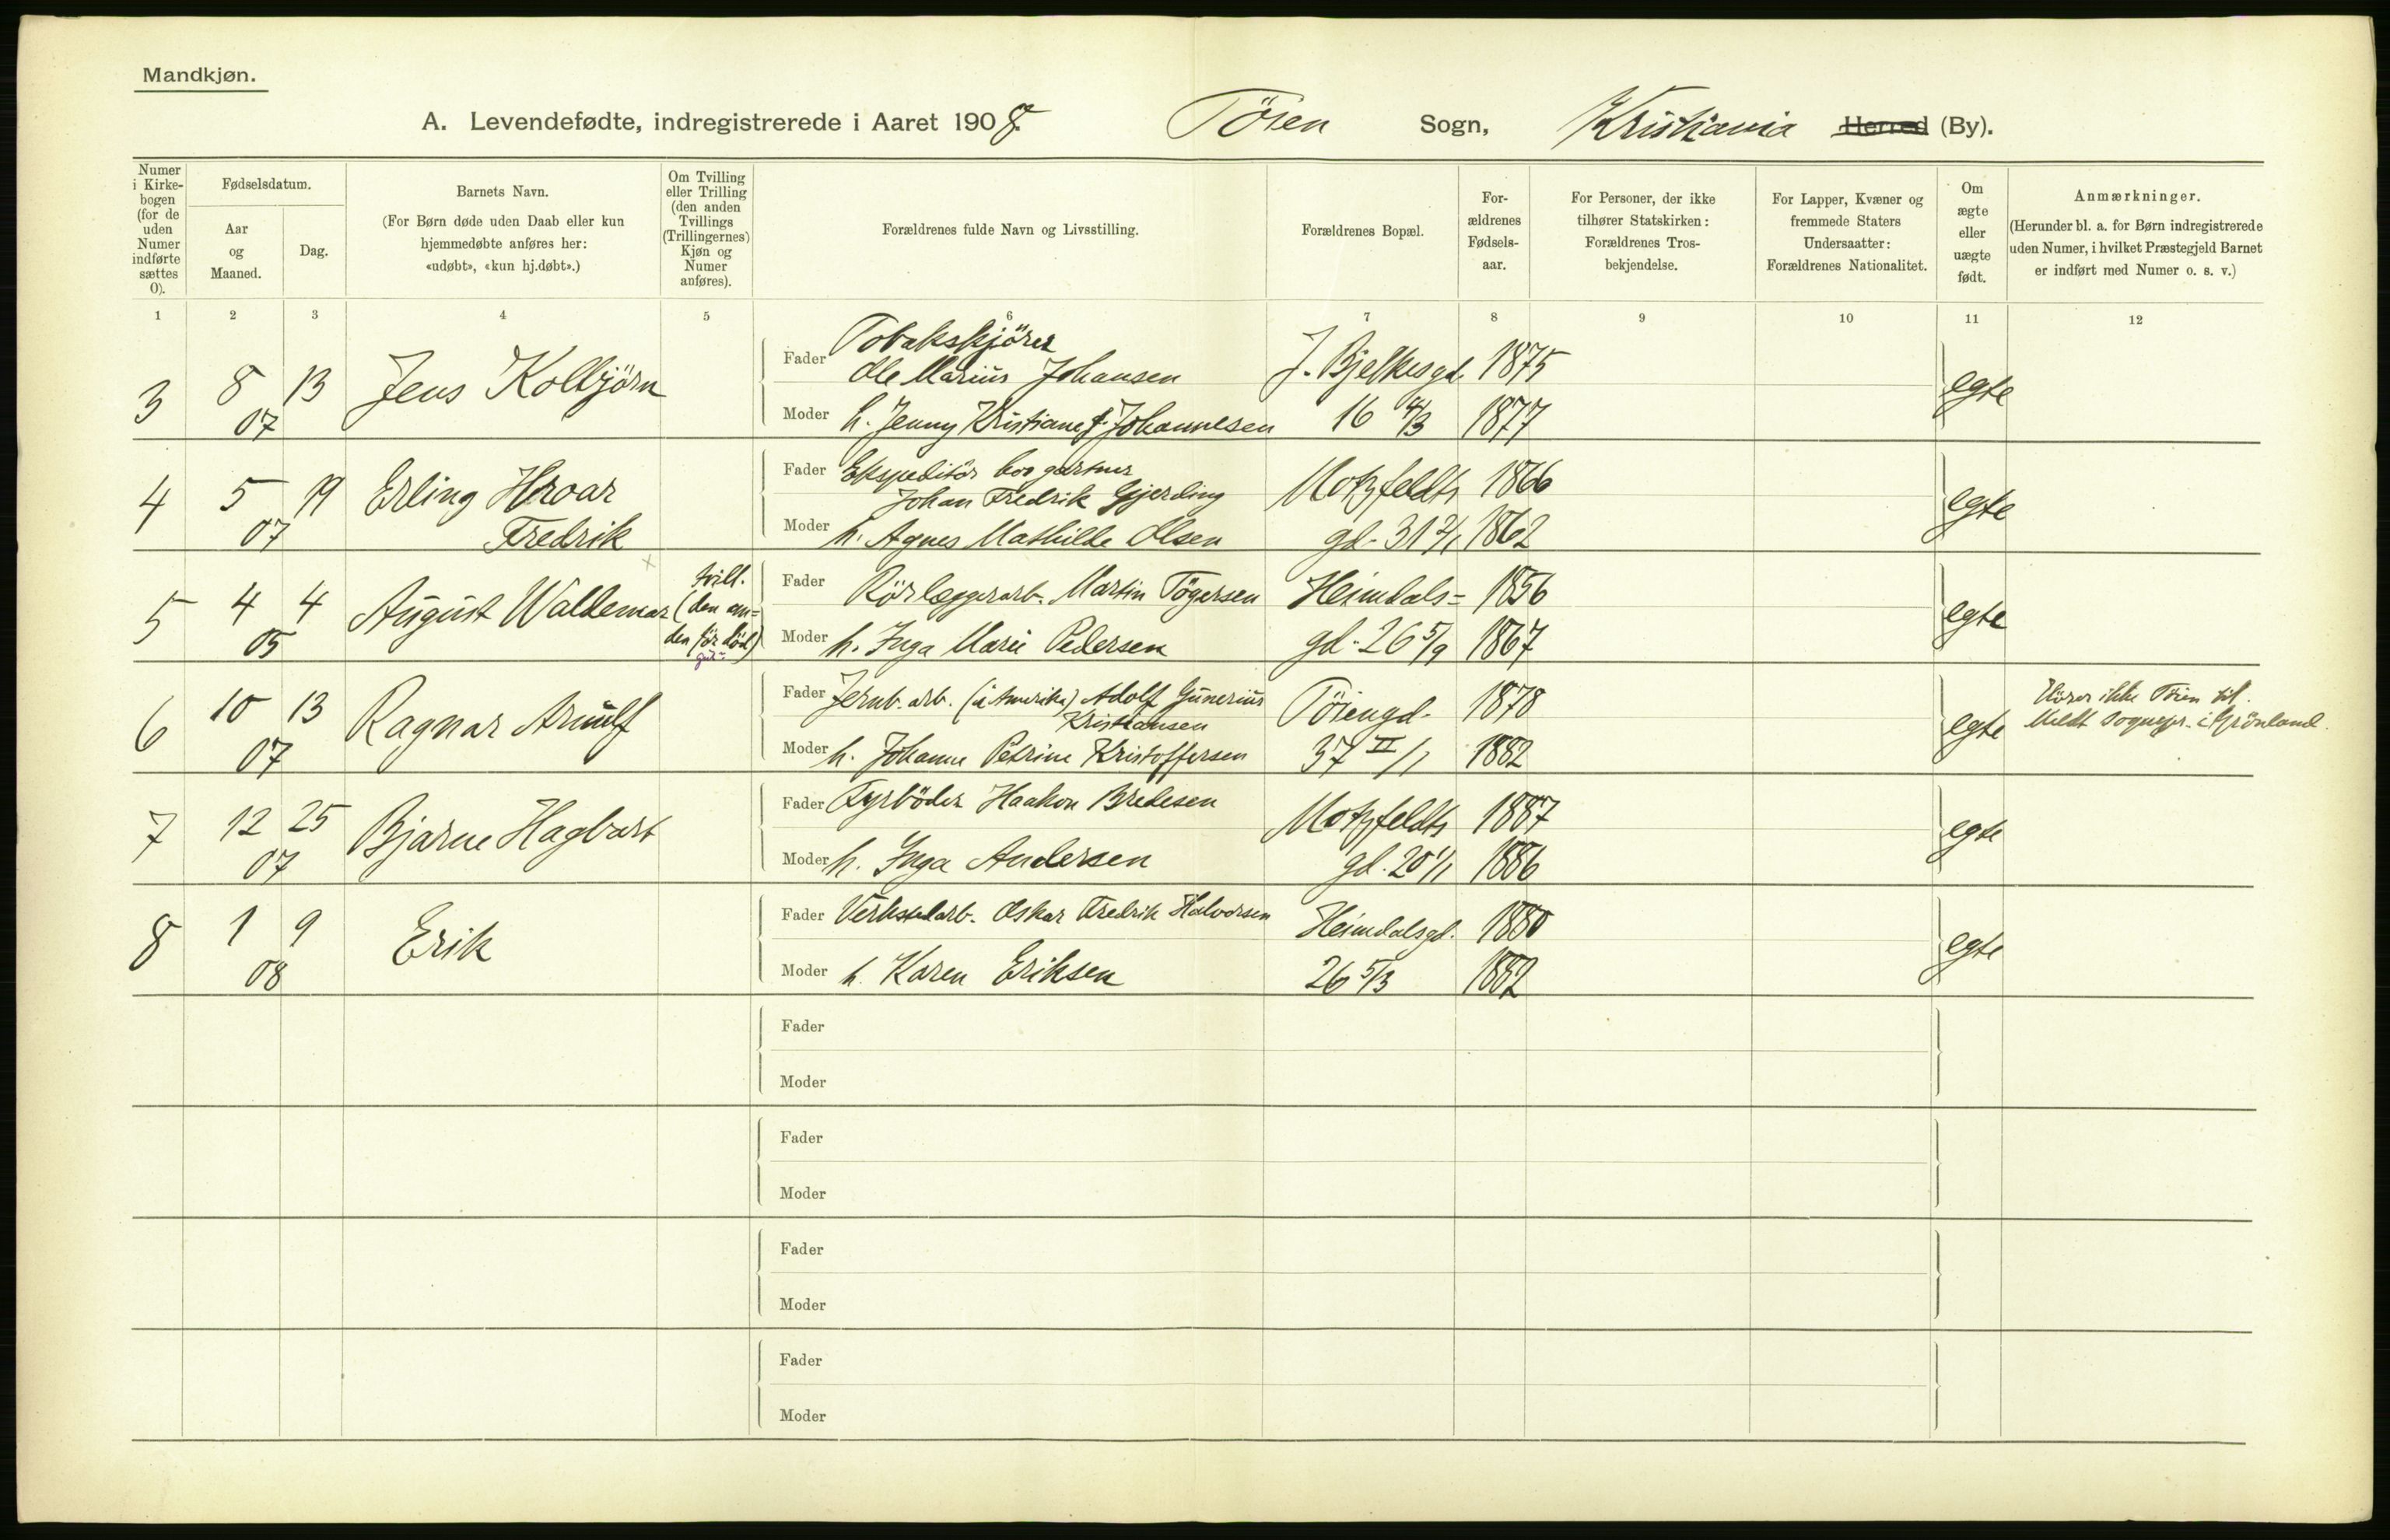 Mandkjøn.
A. Levendefødte, indregistrerede i Aaret 1908. Töien Sogn, Kristiania Herred (By).
Numer i Kirke-bogen (for de uden Numer indførte sættes 0).
Fødselsdatum.
Aar og Maaned.
Dag.
Barnets Navn.
(For Børn døde uden Daab eller kun
hjemmedøbte anføres her:
«udøbt», «kun hj.døbt».)
Om Tvilling
eller Trilling
(den anden
Tvillings
(Trillingernes)
Kjøn og
Numer
anføres).
Forældrenes fulde Navn og Livsstilling.
Forældrenes Bopæl.
For-
ældrenes
Fødsels-
aar.
For Personer, der ikke
tilhører Statskirken:
Forældrenes Tros-
bekjendelse.
For Lapper, Kvæner og
fremmede Staters
Undersaatter:
Forældrenes Nationalitet.
Om
ægte
eller
uægte
født.
Anmærkninger.
(Herunder bl. a. for Børn indregistrerede
uden Numer, i hvilket Præstegjeld Barnet
er indført med Numer o. s. v.)
1 2 3 4 5 6 7 8 9 10 11 12
3 8 07 13 Jens Kolbjörn
Fader Tobakskjörer
Ole Marius Johansen J. Bjelkesgd. 1875
Moder h. Jenny Kristiane f. Johannesen 16 4/3 1877
egte
4 5 07 19 Erling Hroar
Fredrik
Fader Ekspeditör hos gartner
Johan Fredrik Gjerding Motzfeldts 1866
Moder h. Agnes Mathilde Olsen gd. 31 2/1 1862
egte
5 4 05 4 August Waldemar
tvill.
(den an=
den för död)
Fader Rörlæggerarb. Martin Tögersen Heimdals= 1856
Moder h. Inga Marie Pedersen gd. 26 5/9 1867
egte
6 10 07 13 Ragnar Arnulf
Fader Jernb. arb. (i Amerika) Adolf Gunerius
Kristiansen Töiengd. 1878
Moder h. Johanne Petrine Kristoffersen 37 II/1 1882
egte
Hörer ikke Töien til.
Meldt sognepr. i Grönland.
7 12 07 25 Bjarne Hagbart
Fader Fyrböder Haakon Bredesen Motzfeldts 1887
Moder h. Inga Andersen gd. 20 1/1 1886
egte
8 1 08 9 Erik
Fader Verkstedarb. Oskar Fredrik Halvorsen Heimdalsgd. 1880
Moder h. Karen Eriksen 26 5/3 1882
egte
Fader
Moder
Fader
Moder
Fader
Moder
Fader
Moder